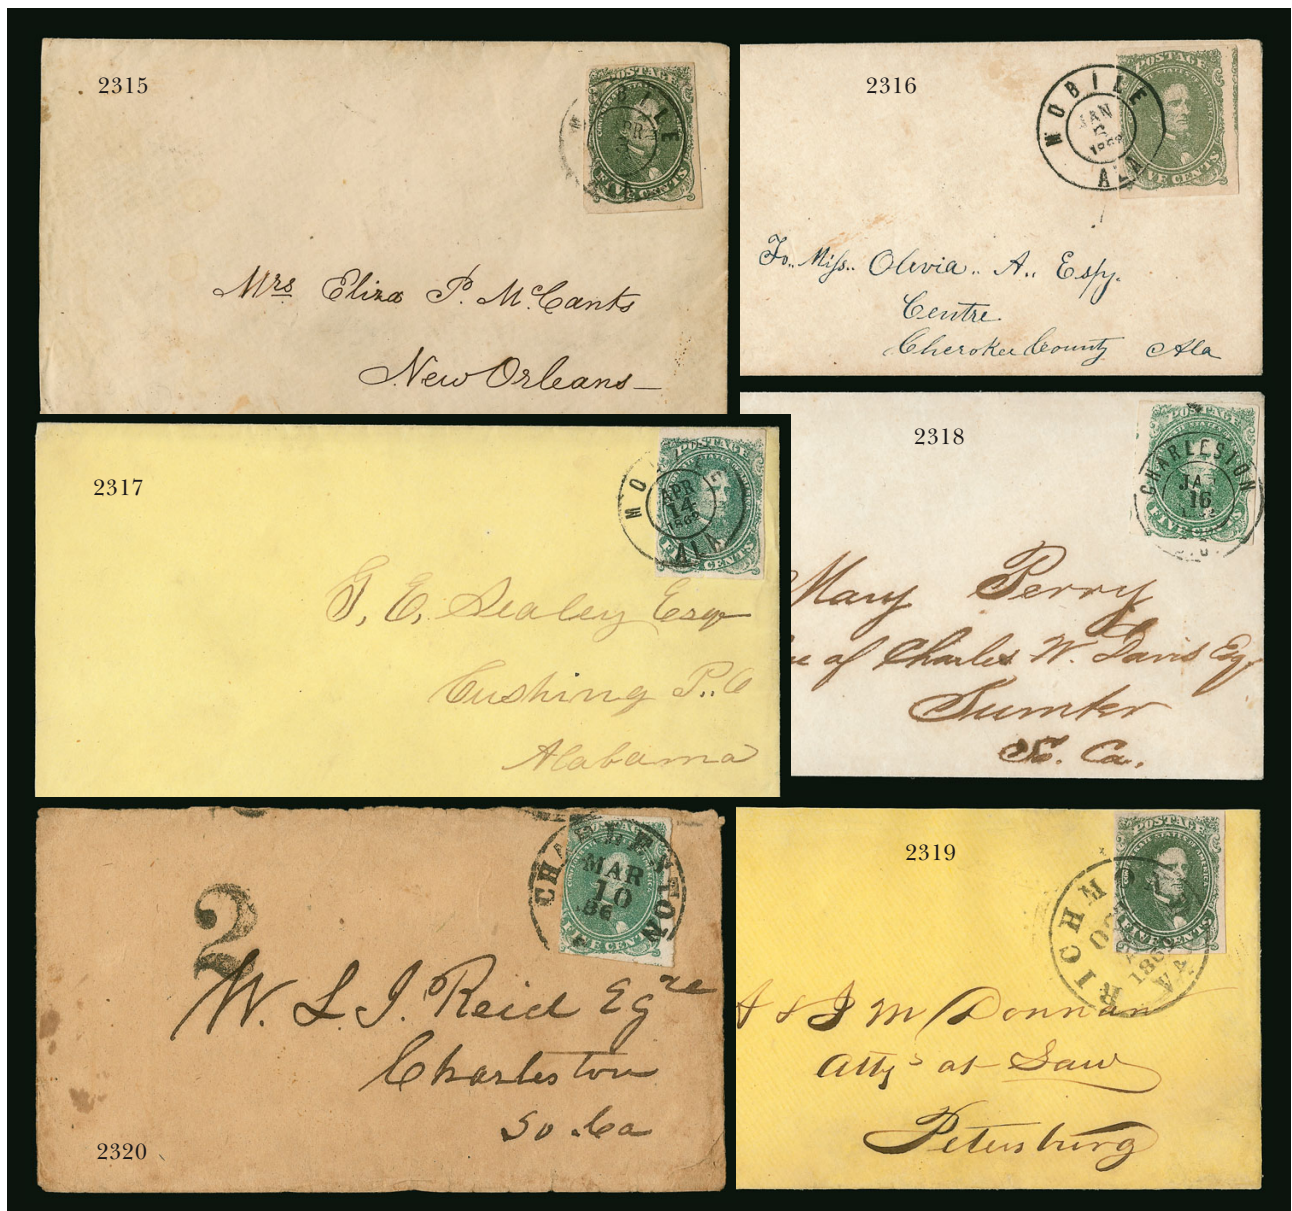 2315
POSTAGE
MOBILE
FIVE CENTS
Mrs Eliza P. McCants
New Orleans
2316
POSTAGE
MOBILE
JAN
ALA
FIVE CENTS
To.. Miss.. Olivia.. A.. Espy.
Centre.
Cherokee County Ala
2317
POSTAGE
MO E
APR
14
1862
ALA
CENTS
G. E. Sealey Esqr
Cushing P.. O
Alabama
2318
POSTAGE
CHARLESTON
JAN
16
FIVE CENTS
Mary Perry
of Charles W. Davis Esqr
Sumter
So. Ca.
2320
POSTAGE
CHARLESTON
MAR
10
FIVE CENTS
2
W. L. J. Reid Esqre
Charleston
So. Ca
2319
POSTAGE
FIVE CENTS
RICHM
VA
A & J M Donnan
Attys at Law
Petersburg